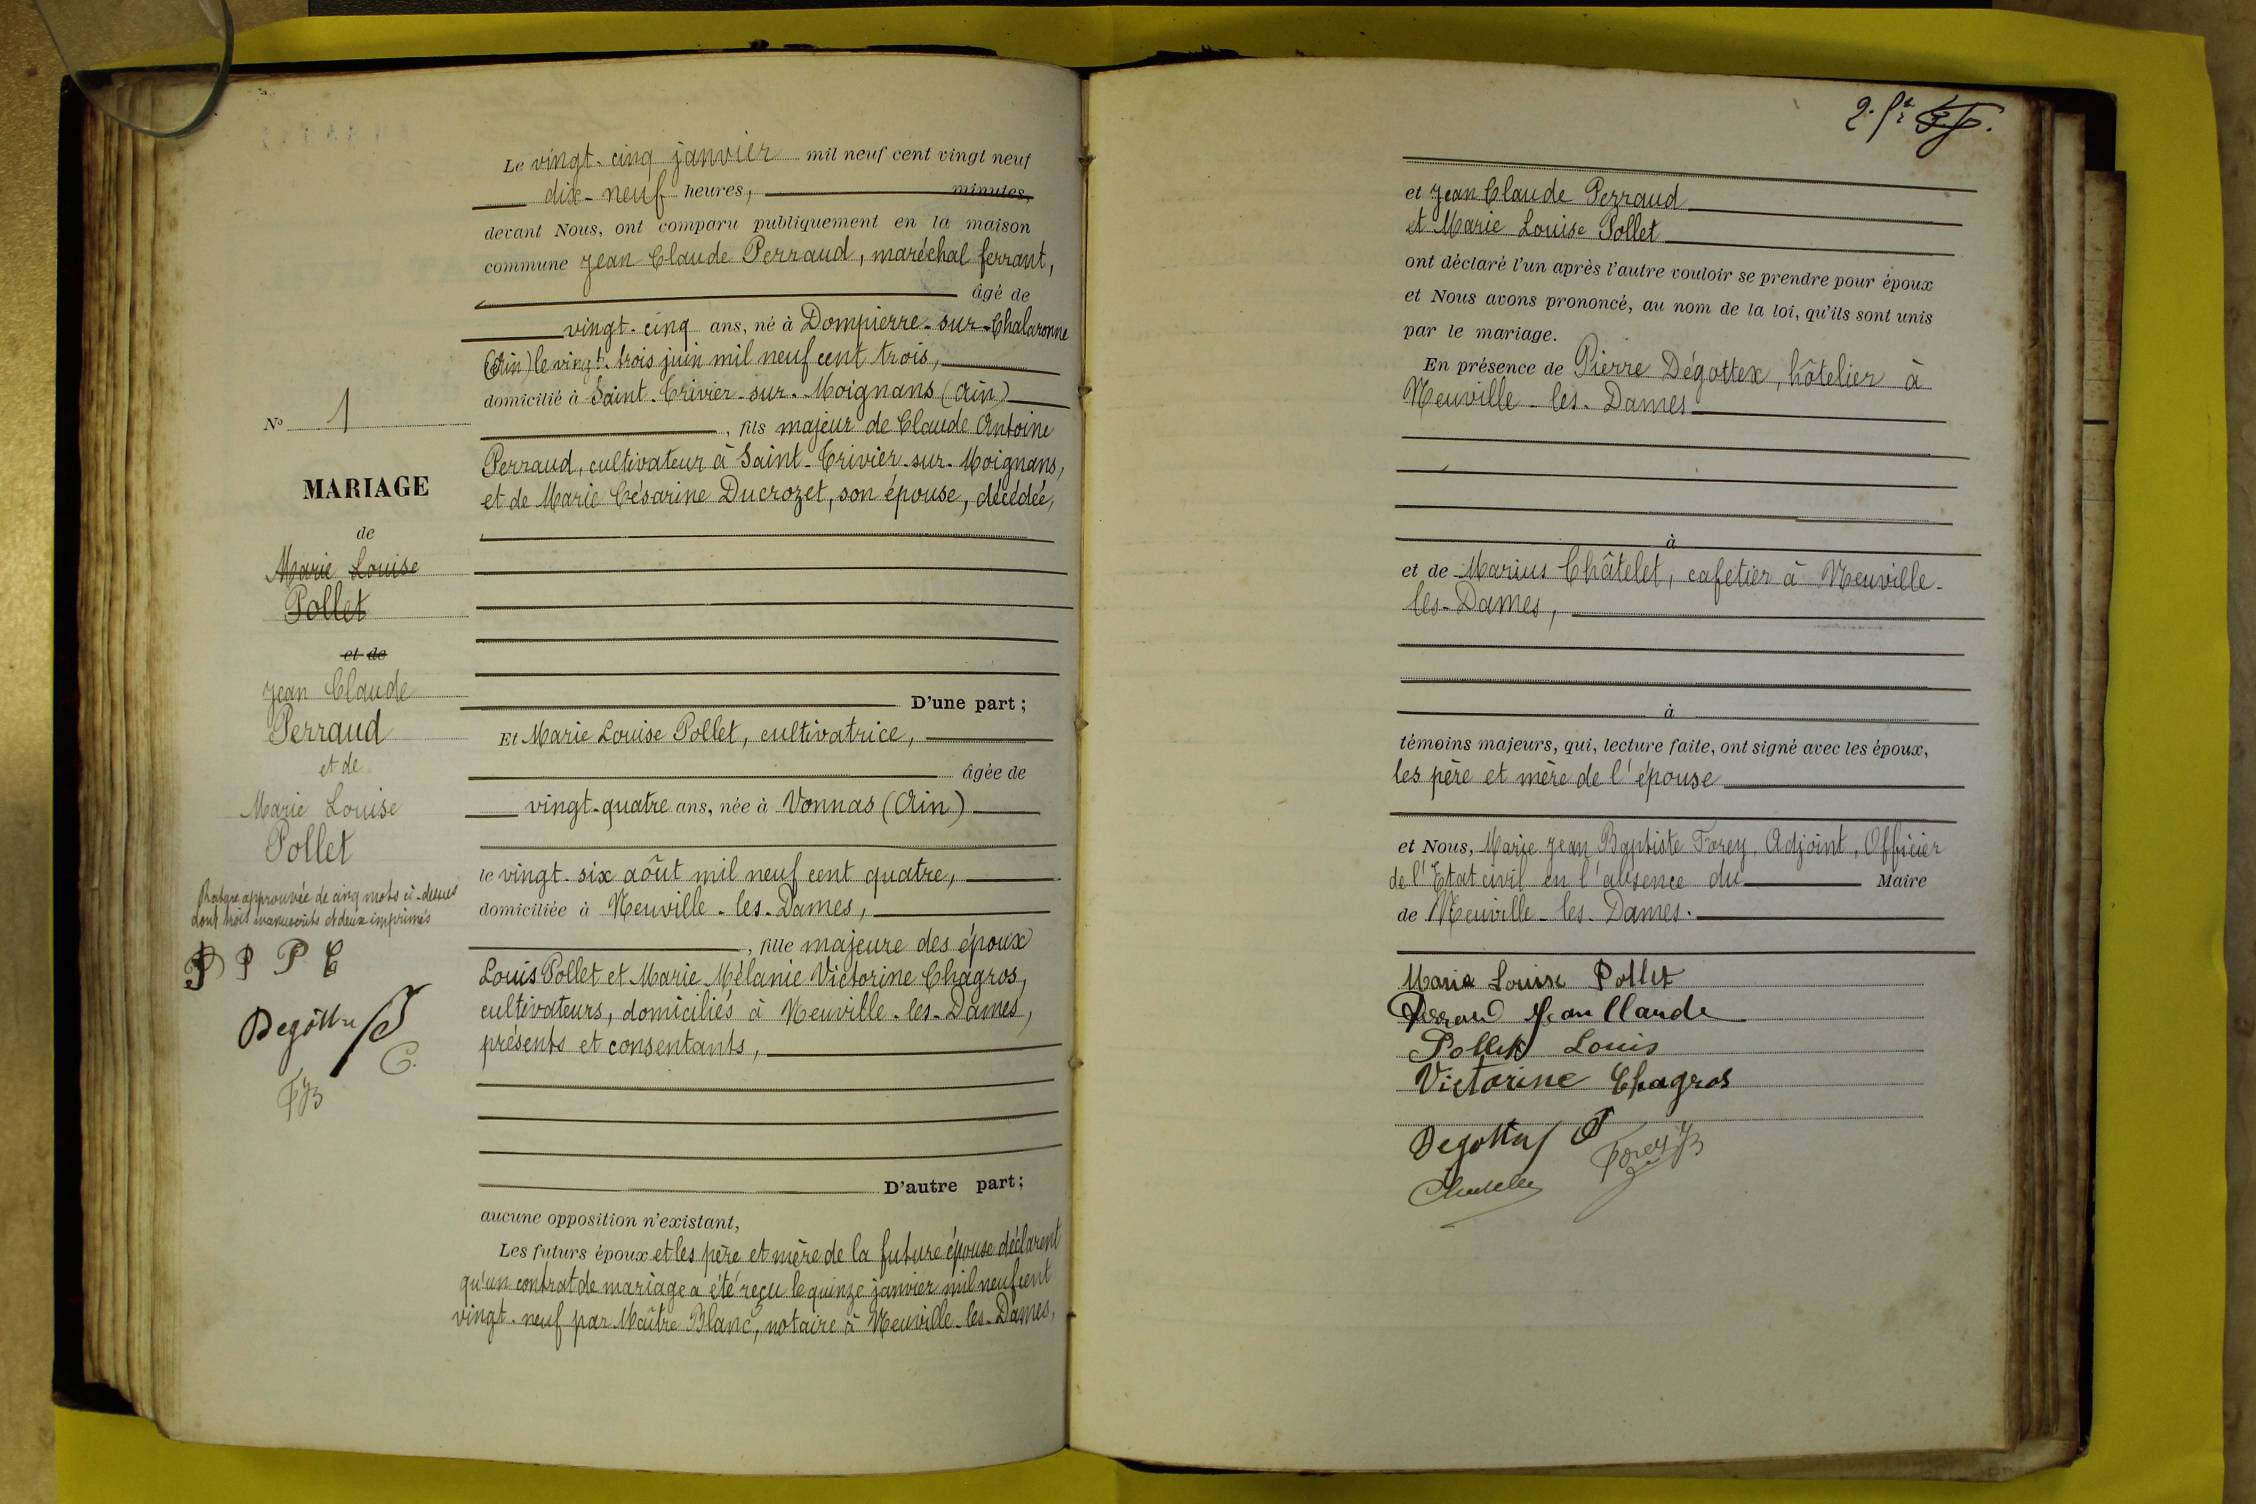 Le vingt-cinq janvier mil neuf cent vingt neuf
dix-neuf heures, minutes,
devant Nous, ont comparu publiquement en la maison
commune Jean Claude Perraud, maréchal ferrant,
âgé de
vingt-cinq ans, né à Dompierre-sur-Chalaronne
(Ain) le vingt-trois juin mil neuf cent trois,
domicilié à Saint-Trivier-sur-Moignans (Ain)
, fils majeur de Claude Antoine
Perraud, cultivateur à Saint-Trivier-sur-Moignans,
et de Marie Césarine Ducrozet, son épouse, décédée,
D'une part;
Et Marie Louise Pollet, cultivatrice,
âgée de
vingt-quatre ans, née à Vonnas (Ain)
le vingt-six août mil neuf cent quatre,
domiciliée à Neuville-les-Dames,
, fille majeure des époux
Louis Pollet et Marie Mélanie Victorine Chagros,
cultivateurs, domiciliés à Neuville-les-Dames,
présents et consentants,
D'autre part;
aucune opposition n'existant,
Les futurs époux et les père et mère de la future épouse déclarent
qu'un contrat de mariage a été reçu le quinze janvier mil neuf cent
vingt-neuf par Maître Blanc, notaire à Neuville-les-Dames,
No 1
MARIAGE
de
Marie Louise
Pollet
et de
Jean Claude
Perraud
et de
Marie Louise
Pollet
Rature approuvée de cinq mots ci-dessus
dont trois manuscrits et deux imprimés
P P P C
Degottex
C.
FJB
2.
et Jean Claude Perraud
et Marie Louise Pollet
ont déclaré l'un après l'autre vouloir se prendre pour époux
et Nous avons prononcé, au nom de la loi, qu'ils sont unis
par le mariage.
En présence de Pierre Dégottex, hôtelier à
Neuville-les-Dames
à
et de Marius Châtelet, cafetier à Neuville-
les-Dames,
à
témoins majeurs, qui, lecture faite, ont signé avec les époux,
les père et mère de l'épouse
et Nous, Marie Jean Baptiste Forey, Adjoint, Officier
de l'Etat civil en l'absence du Maire
de Neuville-les-Dames.
Marie Louise Pollet
Perraud Jean Claude
Pollet Louis
Victorine Chagros
Degottex
Forey JB
Chatelet